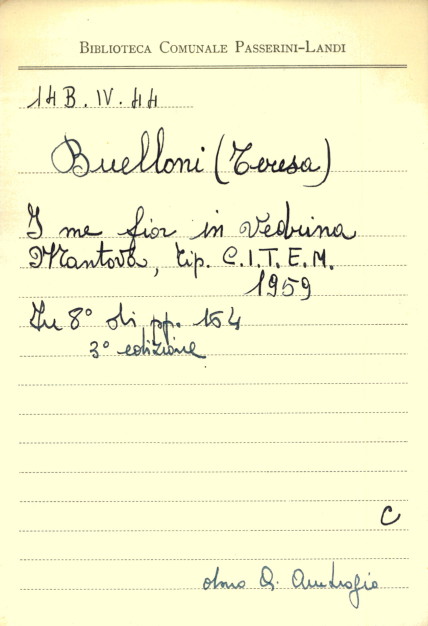 BIBLIOTECA COMUNALE PASSERINI-LANDI
14 B. IV. 44
Buelloni (Teresa)
I me fior in Vedrina
Mantova, tip. C.I.T.E.M.
1959
In 8° di pp. 164
3° edizione
C
dono G. Ambrogio